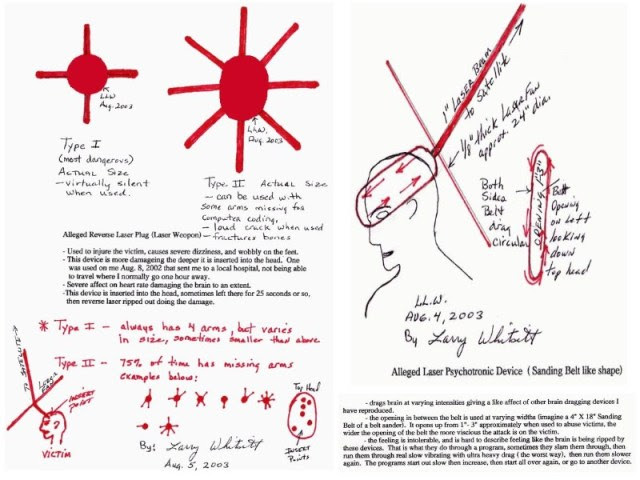 L.L.W.
Aug. 2003
L.L.W.
Aug. 2003
Type I
(most dangerous)
Actual Size
- virtually silent
when used.
Type II Actual Size
- can be used with
some arms missing for
computer coding,
- loud crack when used
- fractures bones
Alleged Reverse Laser Plug (Laser Weapon)
- Used to injure the victim, causes severe dizziness, and wobbly on the feet.
- This device is more damageing the deeper it is inserted into the head. One
was used on me Aug. 8, 2002 that sent me to a local hospital, not being able
to travel where I normally go one hour away.
- Severe affect on heart rate damaging the brain to an extent.
- This device is inserted into the head, sometimes left there for 25 seconds or so,
then reverse laser ripped out doing the damage.
* Type I - always has 4 arms, but varies
in size, sometimes smaller than above.
Type II - 75% of time has missing arms
examples below:
Top Head
Insert
Points
To Satellite
Laser
Insert
Point
Victim
By: Larry Whitsitt
Aug. 5, 2003
1" Laser Beam
to Satellite
1/8" thick Laser Fan
approx. 24" dia.
Both
Sides
Belt
drag
circular
Opening 1"-3"
Belt
Opening
on Left
looking
down
top head
L.L.W.
Aug. 4, 2003
By Larry Whitsitt
Alleged Laser Psychotronic Device ( Sanding Belt like shape)
- drags brain at varying intensities giving a like affect of other brain dragging devices I
have reproduced.
- the opening in between the belt is used at varying widths (imagine a 4" X 18" Sanding
Belt of a belt sander). It opens up from 1"- 3" approximately when used to abuse victims, the
wider the opening of the belt the more vicious the attack is on the victim.
- the feeling is intolerable, and is hard to describe feeling like the brain is being ripped by
these devices. That is what they do through a program, sometimes they slam them through, then
run them through real slow vibrating with ultra heavy drag ( the worst way), then run them slower
again. The programs start out slow then increase, then start all over again, or go to another device.